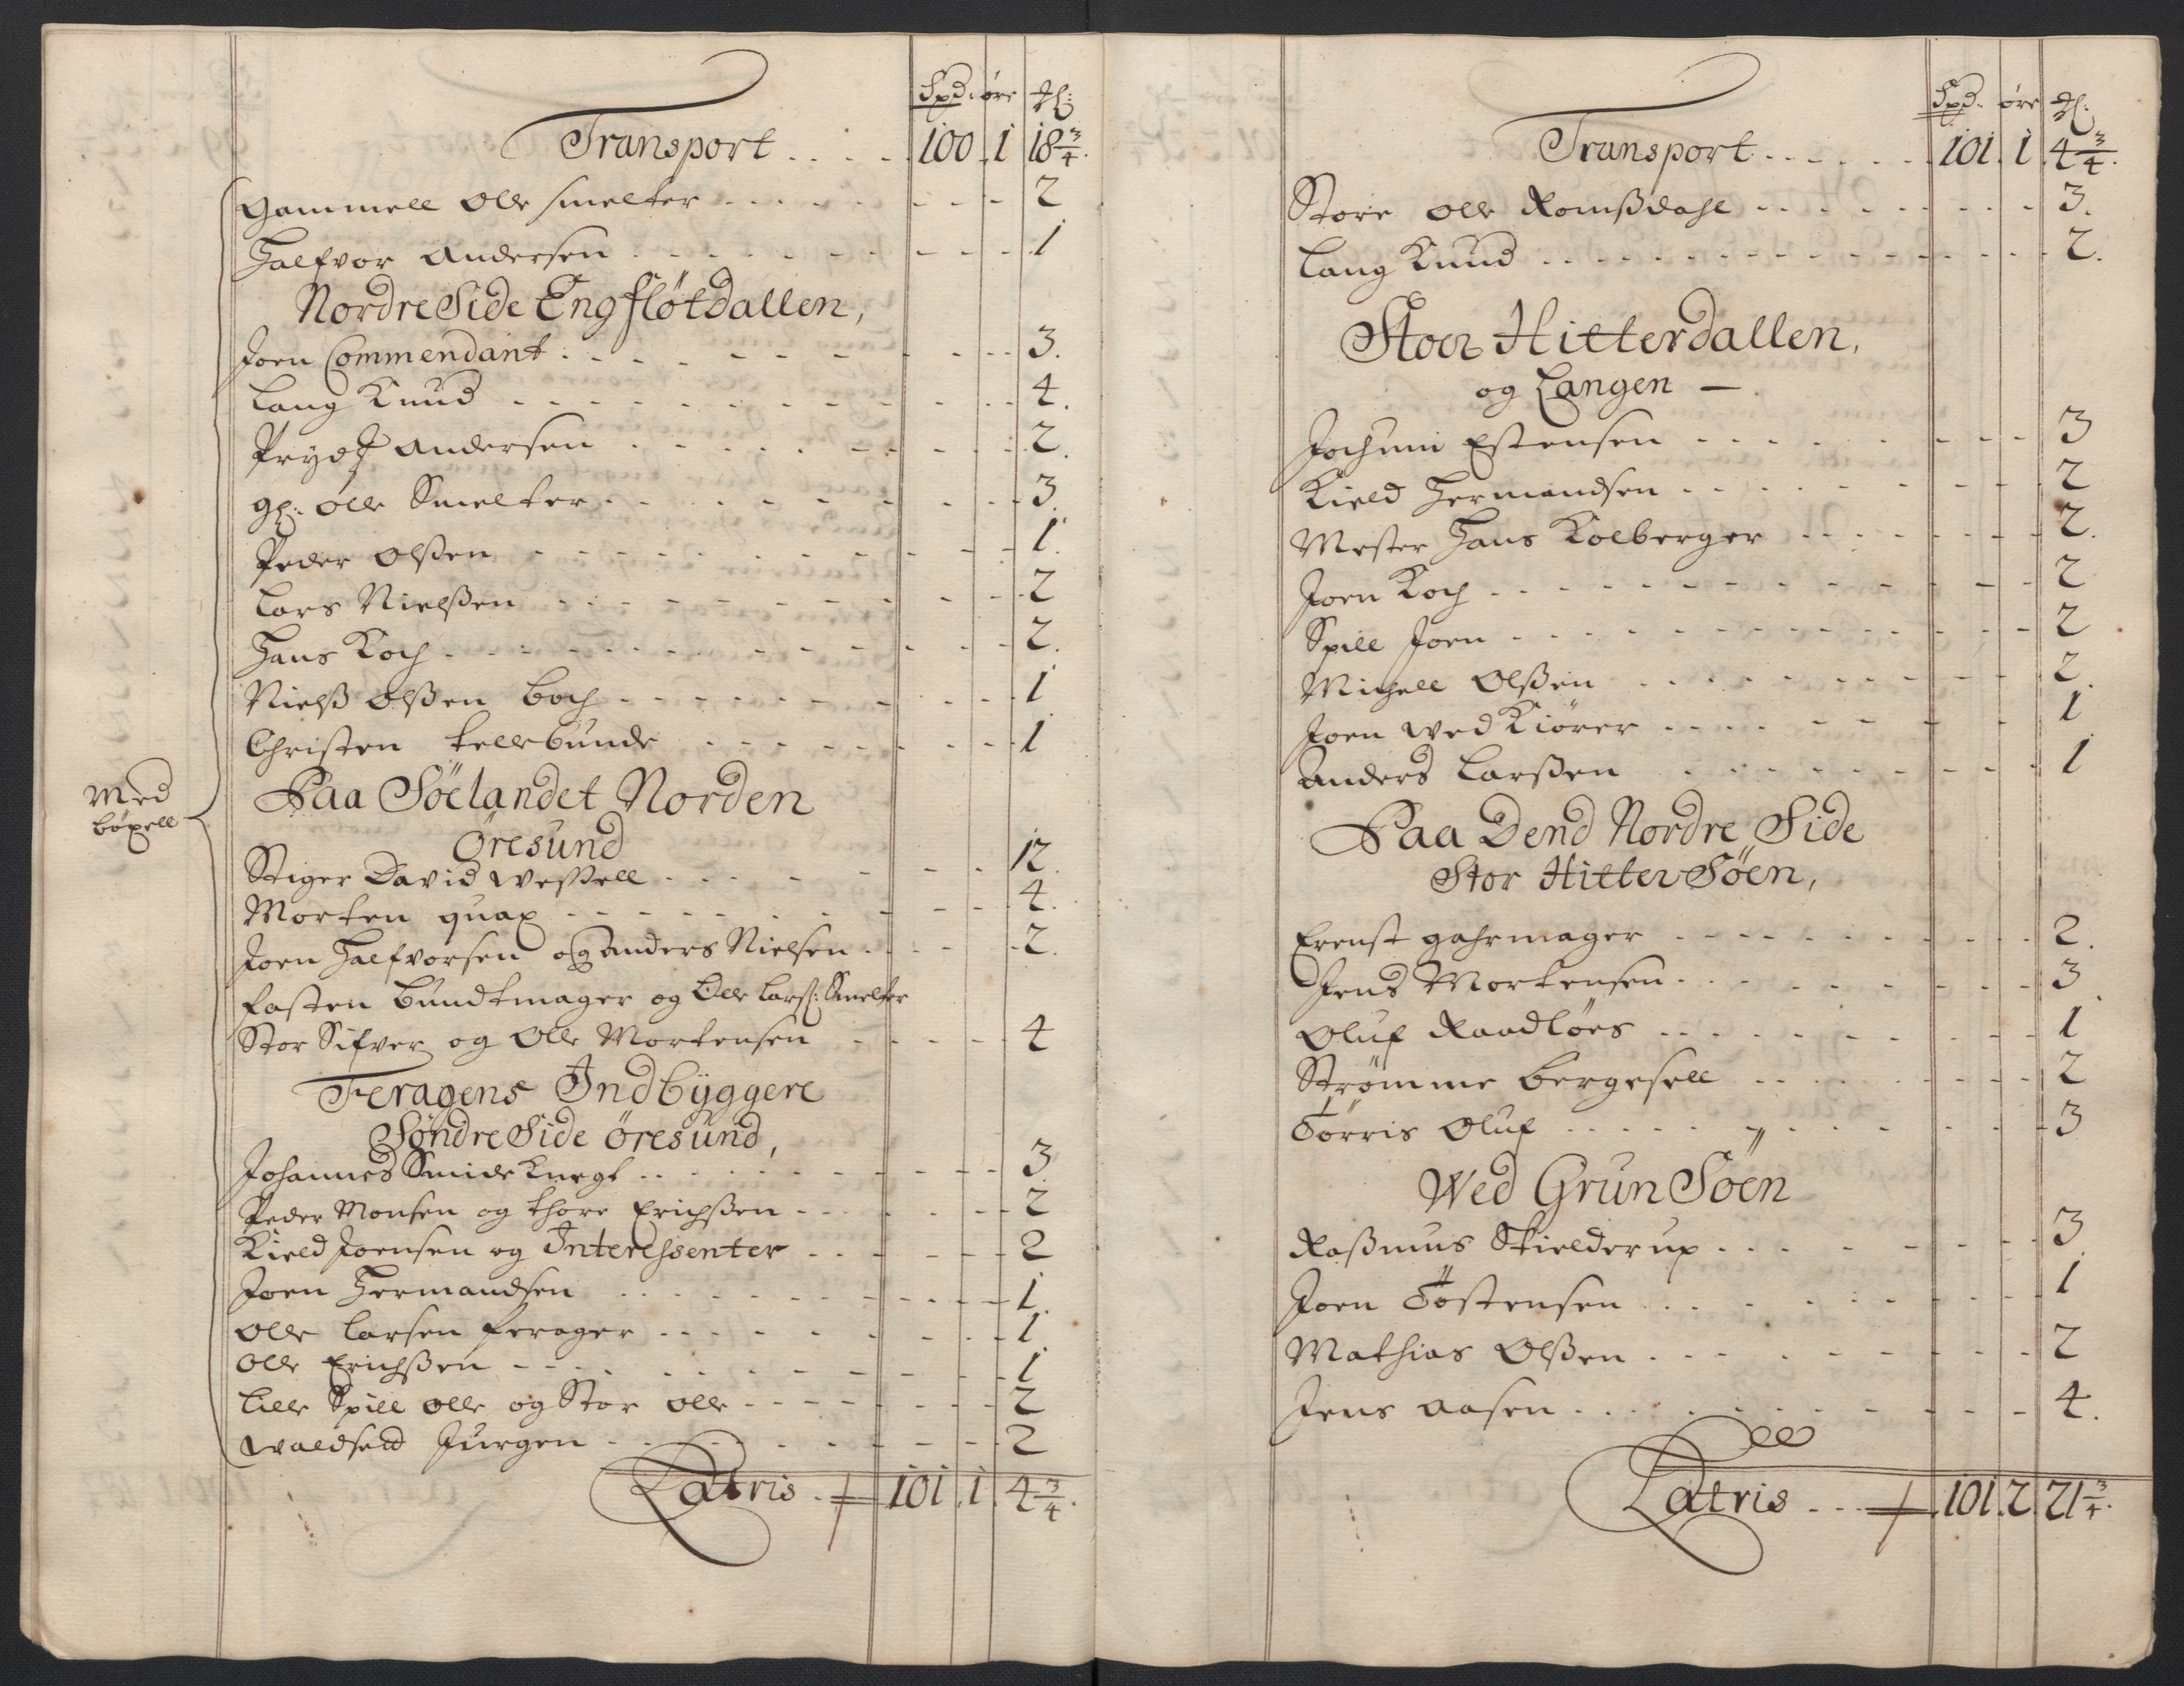 Spd. öre
Transport . . . . . 100 . 1 18 3/4.
Gammell Olle Smelter 2
Halfvor Andersen 1
Nordre Side Engfløtdallen,
Joen Commendant 3.
Lang Knud 4.
Andersen 2.
gl: Olle Smelter 3.
Peder Olßen 1.
Lars Nielßen 2
Hans Koch 2.
Nielß Olßen Boch 1
Christen Tellebunde 1
Med
bøxell
Paa Söelandet Norden
Öresund
Stiger David Weßell 12.
Morten quax 4.
Joen Halfvorsen og Anders Nielsen 2.
Fasten Bundtmager og Olle Larß: Smelter
Stor Sifver og Olle Mortensen 4
Feragens Indbÿggere
Søndre Side Öresund,
Johannes Smide Knegt 3
Peder Monsen og Thore Erichßen 2
Kield Joensen og Interessenter 2
Joen Hermandsen 1.
Olle Larsen Ferager 1
Olle Erichßen 1
Lille Spill Olle og Stor Olle 2
Jurgen 2
Latris 101 . 1 . 4 3/4.
Spd. öre
Transport . . . . . 101 . 1 . 4 3/4.
Store Olle Romßdahl 3.
Lang Knud 2.
Stoer Hitterdallen,
og Langen —
Jochum Estensen 3
Kield Hermandsen 2
Mester Hans Kolberger 2.
Joen Koch 2
Spill Joen 2
Michell Olßen 2.
Joen wed Kiörer 1
Anders Larßen 1
Paa Dend Nordre Side
Stor Hitter Söen,
Erenst gahrmager 2.
Jens Mortensen 3.
Oluf Raadlöes 1
Strömme Bergesell 2
Törris Oluf 3
Wed Grun Söen
Raßmus Skielderup 3.
Joen Töstensen 1
Mathias Olßen 2
Jens Aasen 4.
Latris 101 . 2 . 21 3/4.